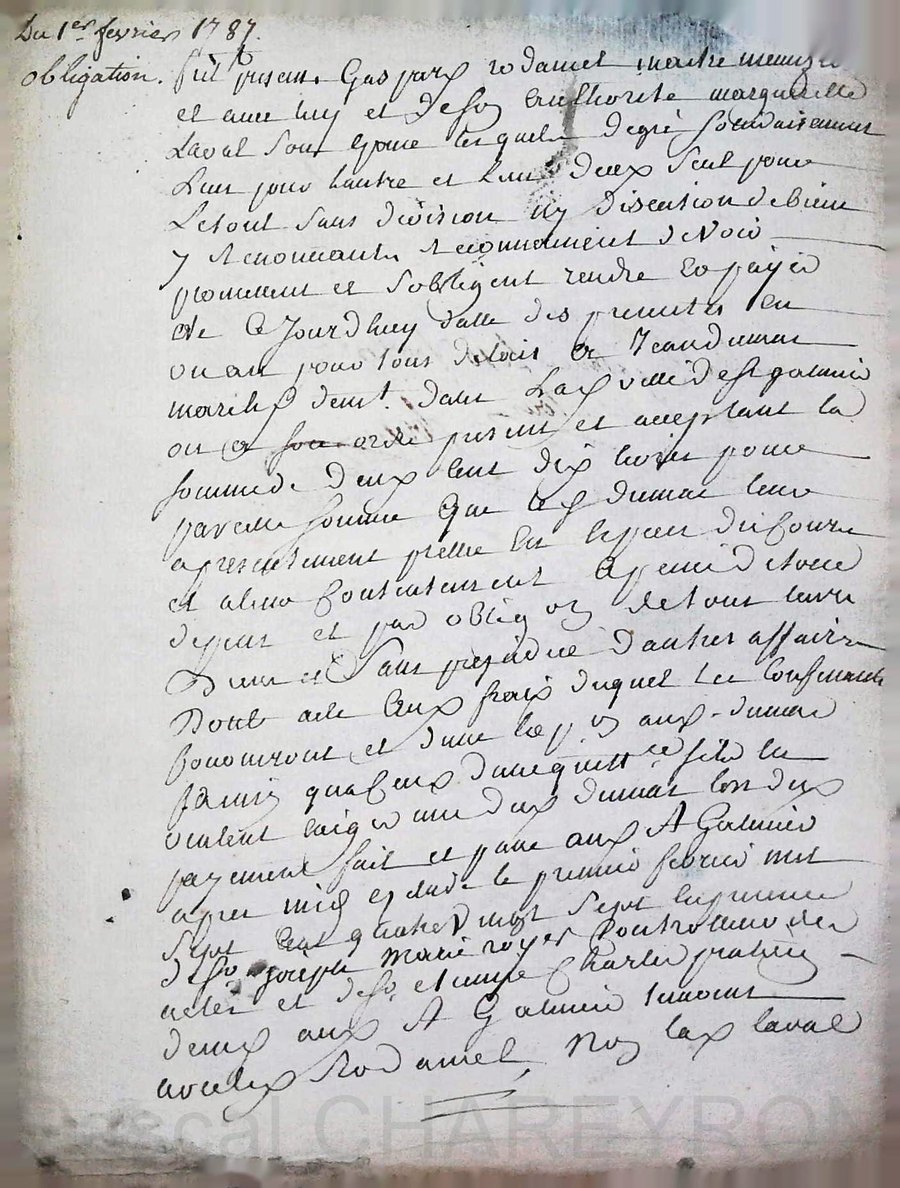 Du 1er fevrier 1787.
obligation. fut presant Gaspard rodamel maitre menuizier
et avec luy et de son authorité margueritte
Laval son epouse lesquels de gré solidairement
Lun pour lautre et lun deux seul pour
Letout sans division ny discution de biens
y renoncants reconnoissent devoir
promettent et sobligent rendre et payer
de ce jourdhuy datte des presentes en
un an pour tous delais a Jean dumas
march demt. dans Lad ville de st galmier
ou a son ordre present et acceptant la
somme de deux cent dix livres pour
pareille somme que led dumas leur a
presentement preté en especes de cours
et a leur contentement a peine de tous
depens et par obligon de tous leurs
Biens et sans prejudice dautres affaires
Dont acte aux frais duquel les confessants
fourniront et dune exp on aud. dumas
parmy quoy eux dune quittce sils en
veulent exiger une dud dumas lors dud
payement fait et passé aud St Galmier
apres midy etude le premier fevrier mil
sept cent quatrevingt sept en presence
de sr. joseph marie royer controlleur des
actes et de sr. etienne Charles
demt aud St Galmier temoins
avec led Rodamel, Non lad laval
Pascal CHAREYRON